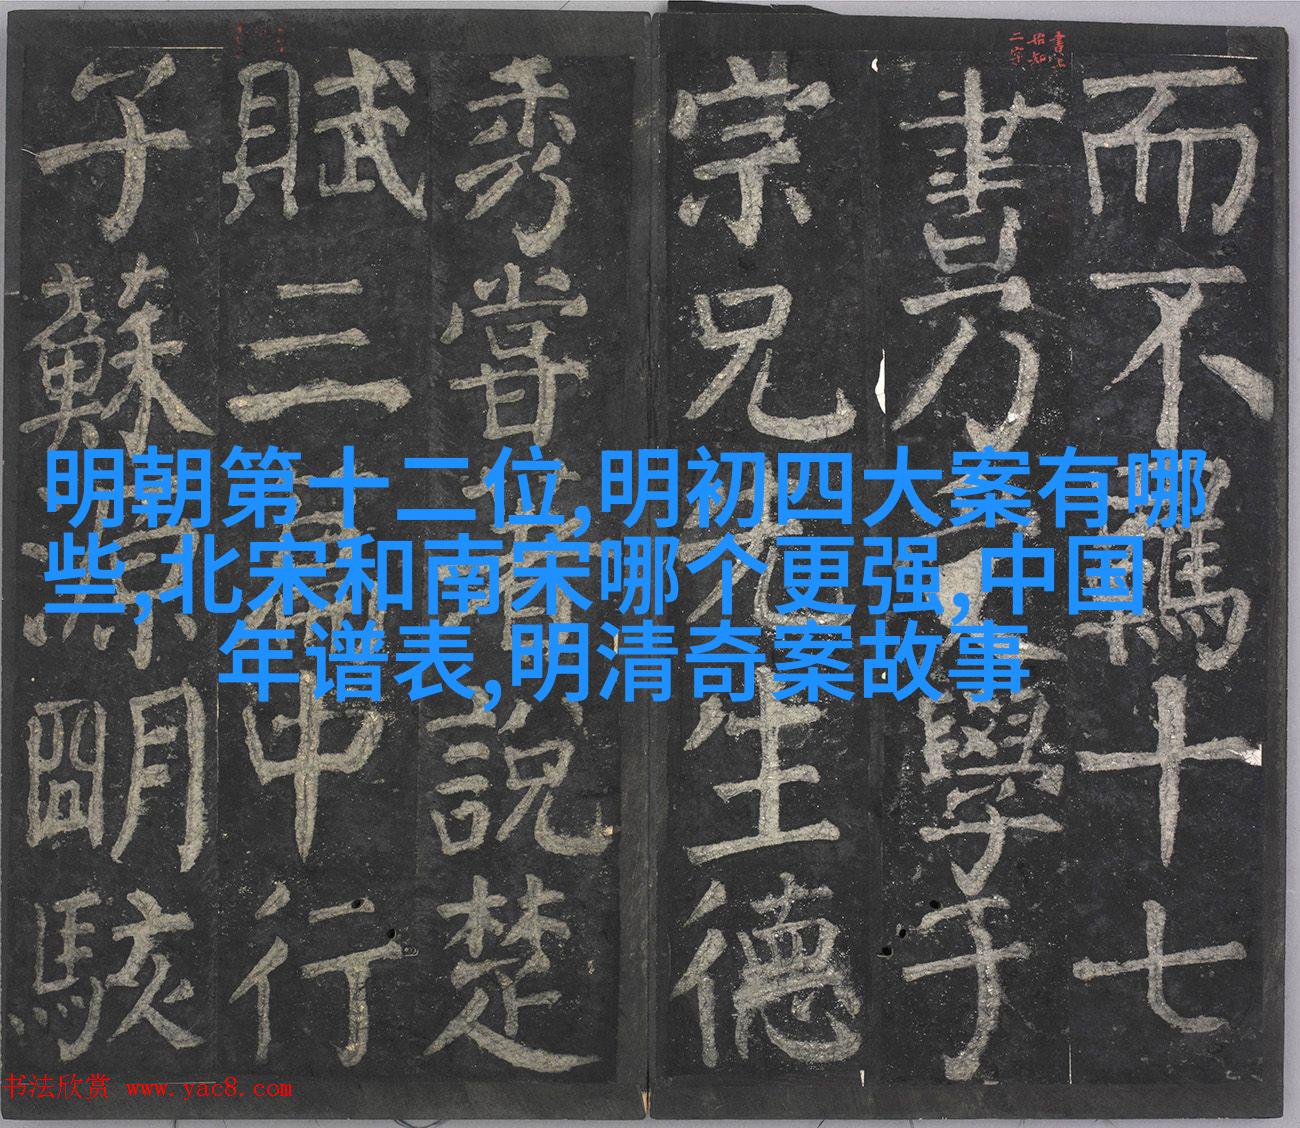 而不羈十七
書乃學于
宗兄先生德
秀嘗說楚
賦三篇中行
子蘇源明駭
明朝第十二位,明初四大案有哪
些,北宋和南宋哪个更强,中国
年谱表,明清奇案故事
书法欣赏 www.yac8.com